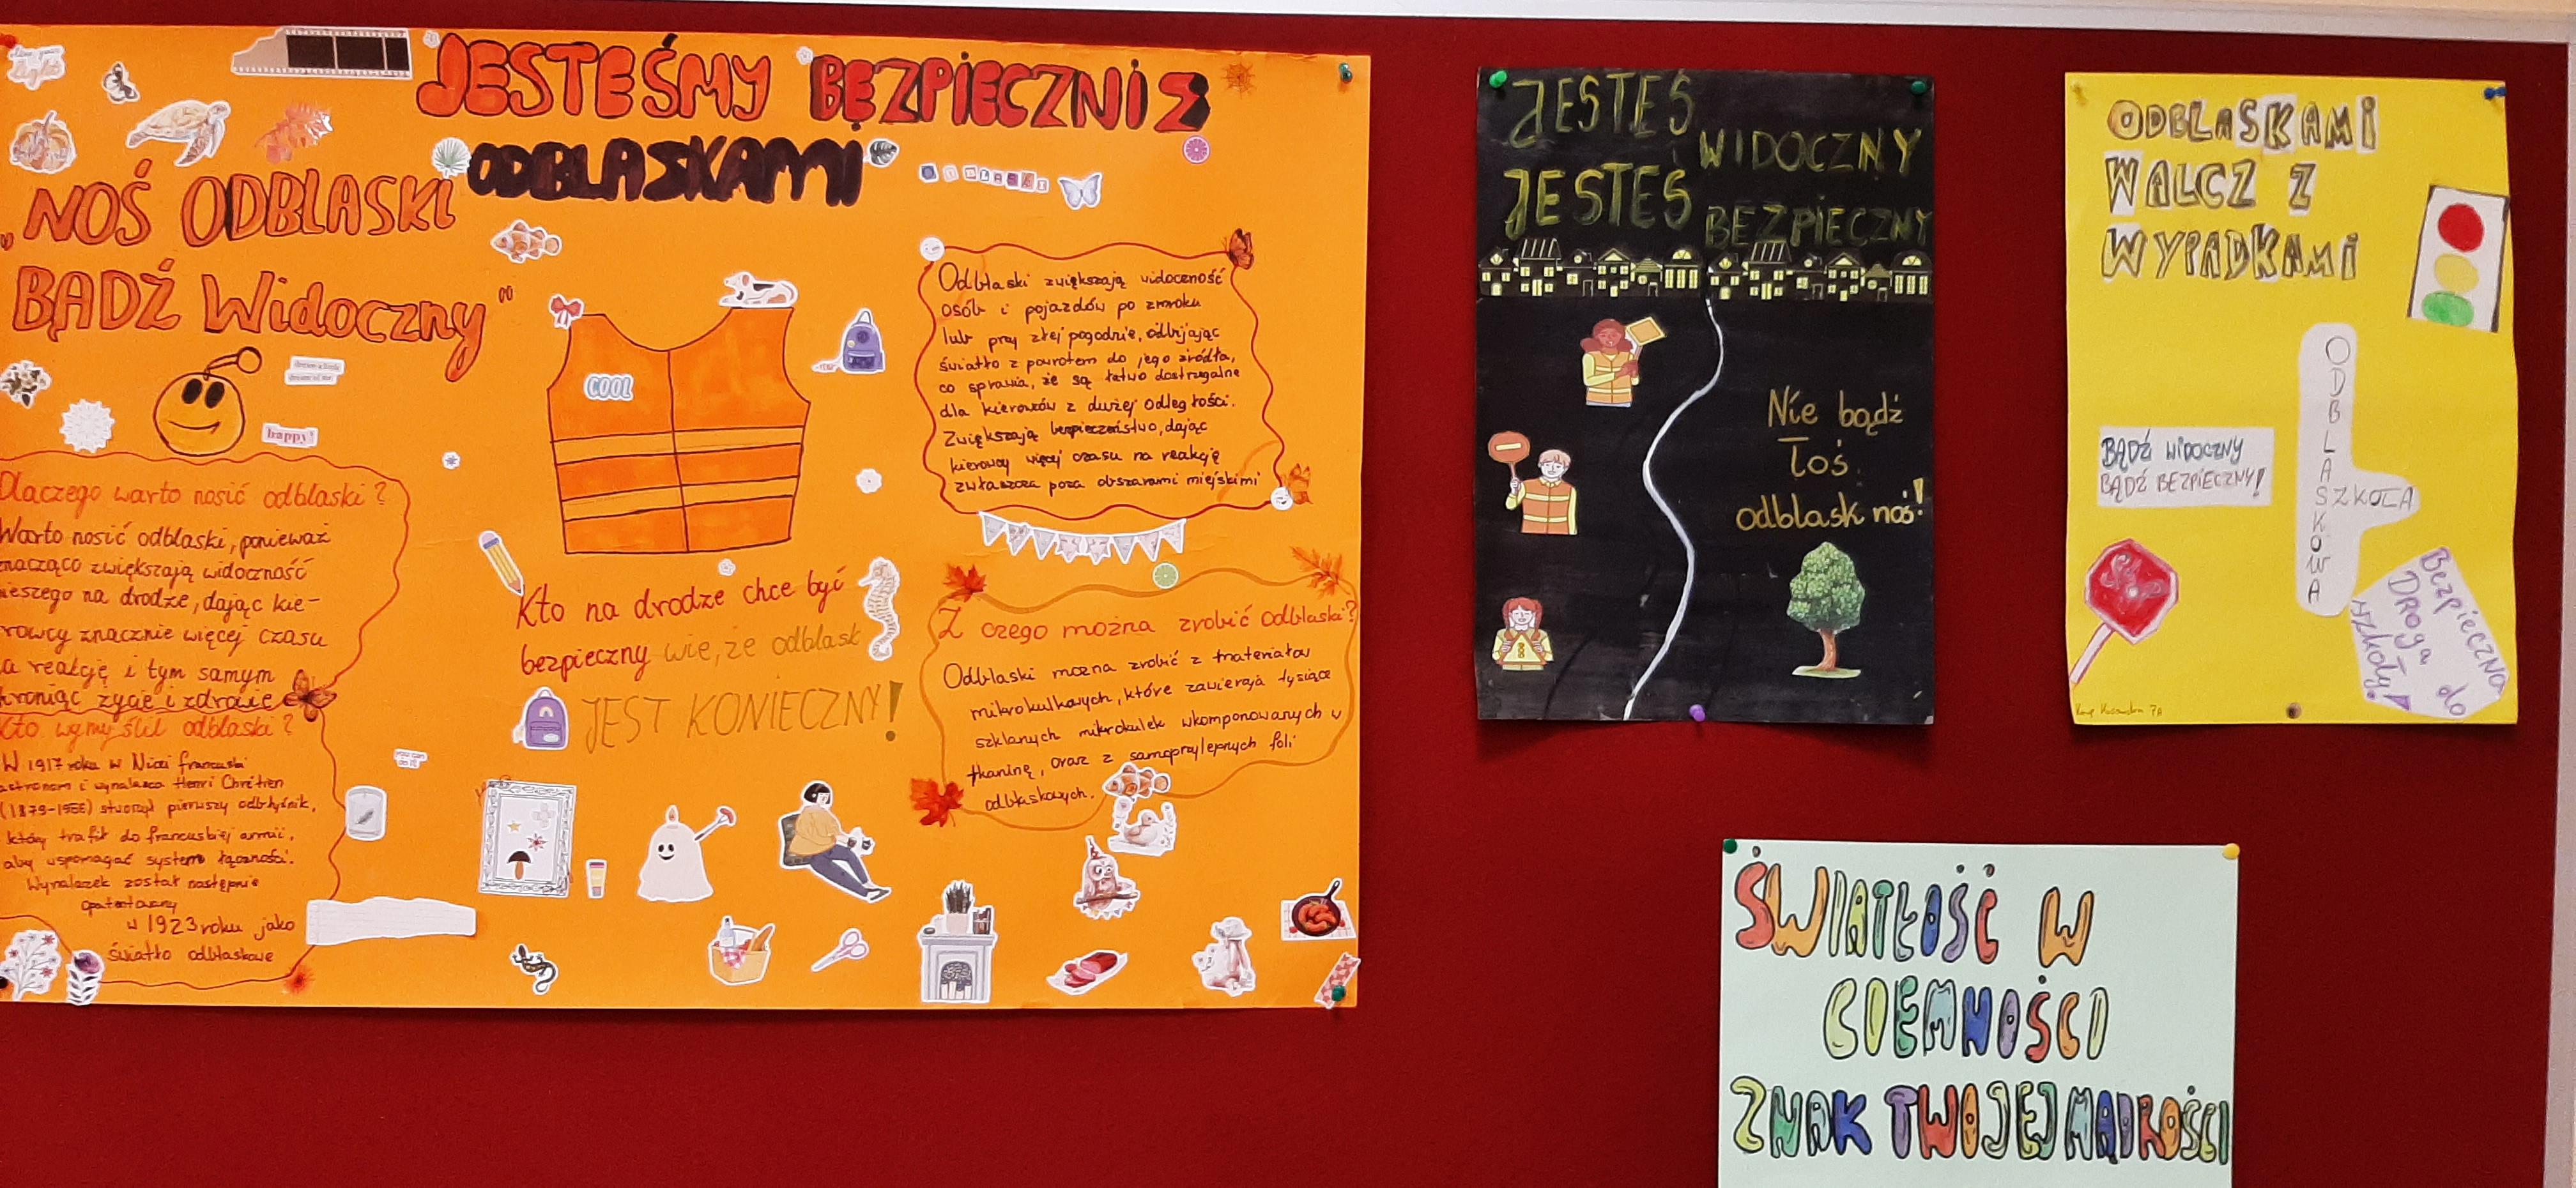 JESTEŚMY BEZPIECZNI Z
ODBLASKAMI
ODBLASKI
„NOŚ ODBLASKI
BĄDŹ Widoczny"
happy!
COOL
Dlaczego warto nosić odblaski?
Warto nosić odblaski, ponieważ
znacząco zwiększają widoczność
ieszego na drodze, dając kie-
rowcy znacznie więcej czasu
a reakcję i tym samym
hroniąc życie i zdrowie
Kto wymyślił odblaski?
W 1917 roku w Nicei francuski
astronom i wynalazca Henri Chrétien
(1879-1956) stworzył pierwszy odbłyśnik,
który trafił do francuskiej armii,
aby wspomagać system łączności.
Wynalazek został następnie
opatentowany
w 1923 roku jako
światło odblaskowe
Kto na drodze chce być
bezpieczny wie, że odblask
JEST KONIECZNY!
Odblaski zwiększają widoczność
osób i pojazdów po zmroku
lub przy złej pogodnie, odbijając
światło z powrotem do jego źródła,
co sprawia, że są łatwo dostrzegalne
dla kierowców z dużej odległości.
Zwiększają bezpieczeństwo, dając
kierowcy więcej czasu na reakcję
zwłaszcza poza obszarami miejskimi
Z czego można zrobić odblaski?
Odblaski można zrobić z materiałów
mikrokulkowych, które zawierają tysiące
szklanych mikrokulek wkomponowanych w
tkaninę, oraz z samoprzylepnych foli
odblaskowych.
JESTEŚ WIDOCZNY
JESTEŚ BEZPIECZNY
Nie bądź
Łoś
odblask noś!
ODBLASKAMI
WALCZ Z
WYPADKAMI
ODBLASKOWA
SZKOŁA
BĄDŹ WIDOCZNY
BĄDŹ BEZPIECZNY!
Bezpieczna
DROGA do
szkoły!
ŚWIATŁOŚĆ W
CIEMNOŚCI
ZNAK TWOJEJ MĄDROŚCI